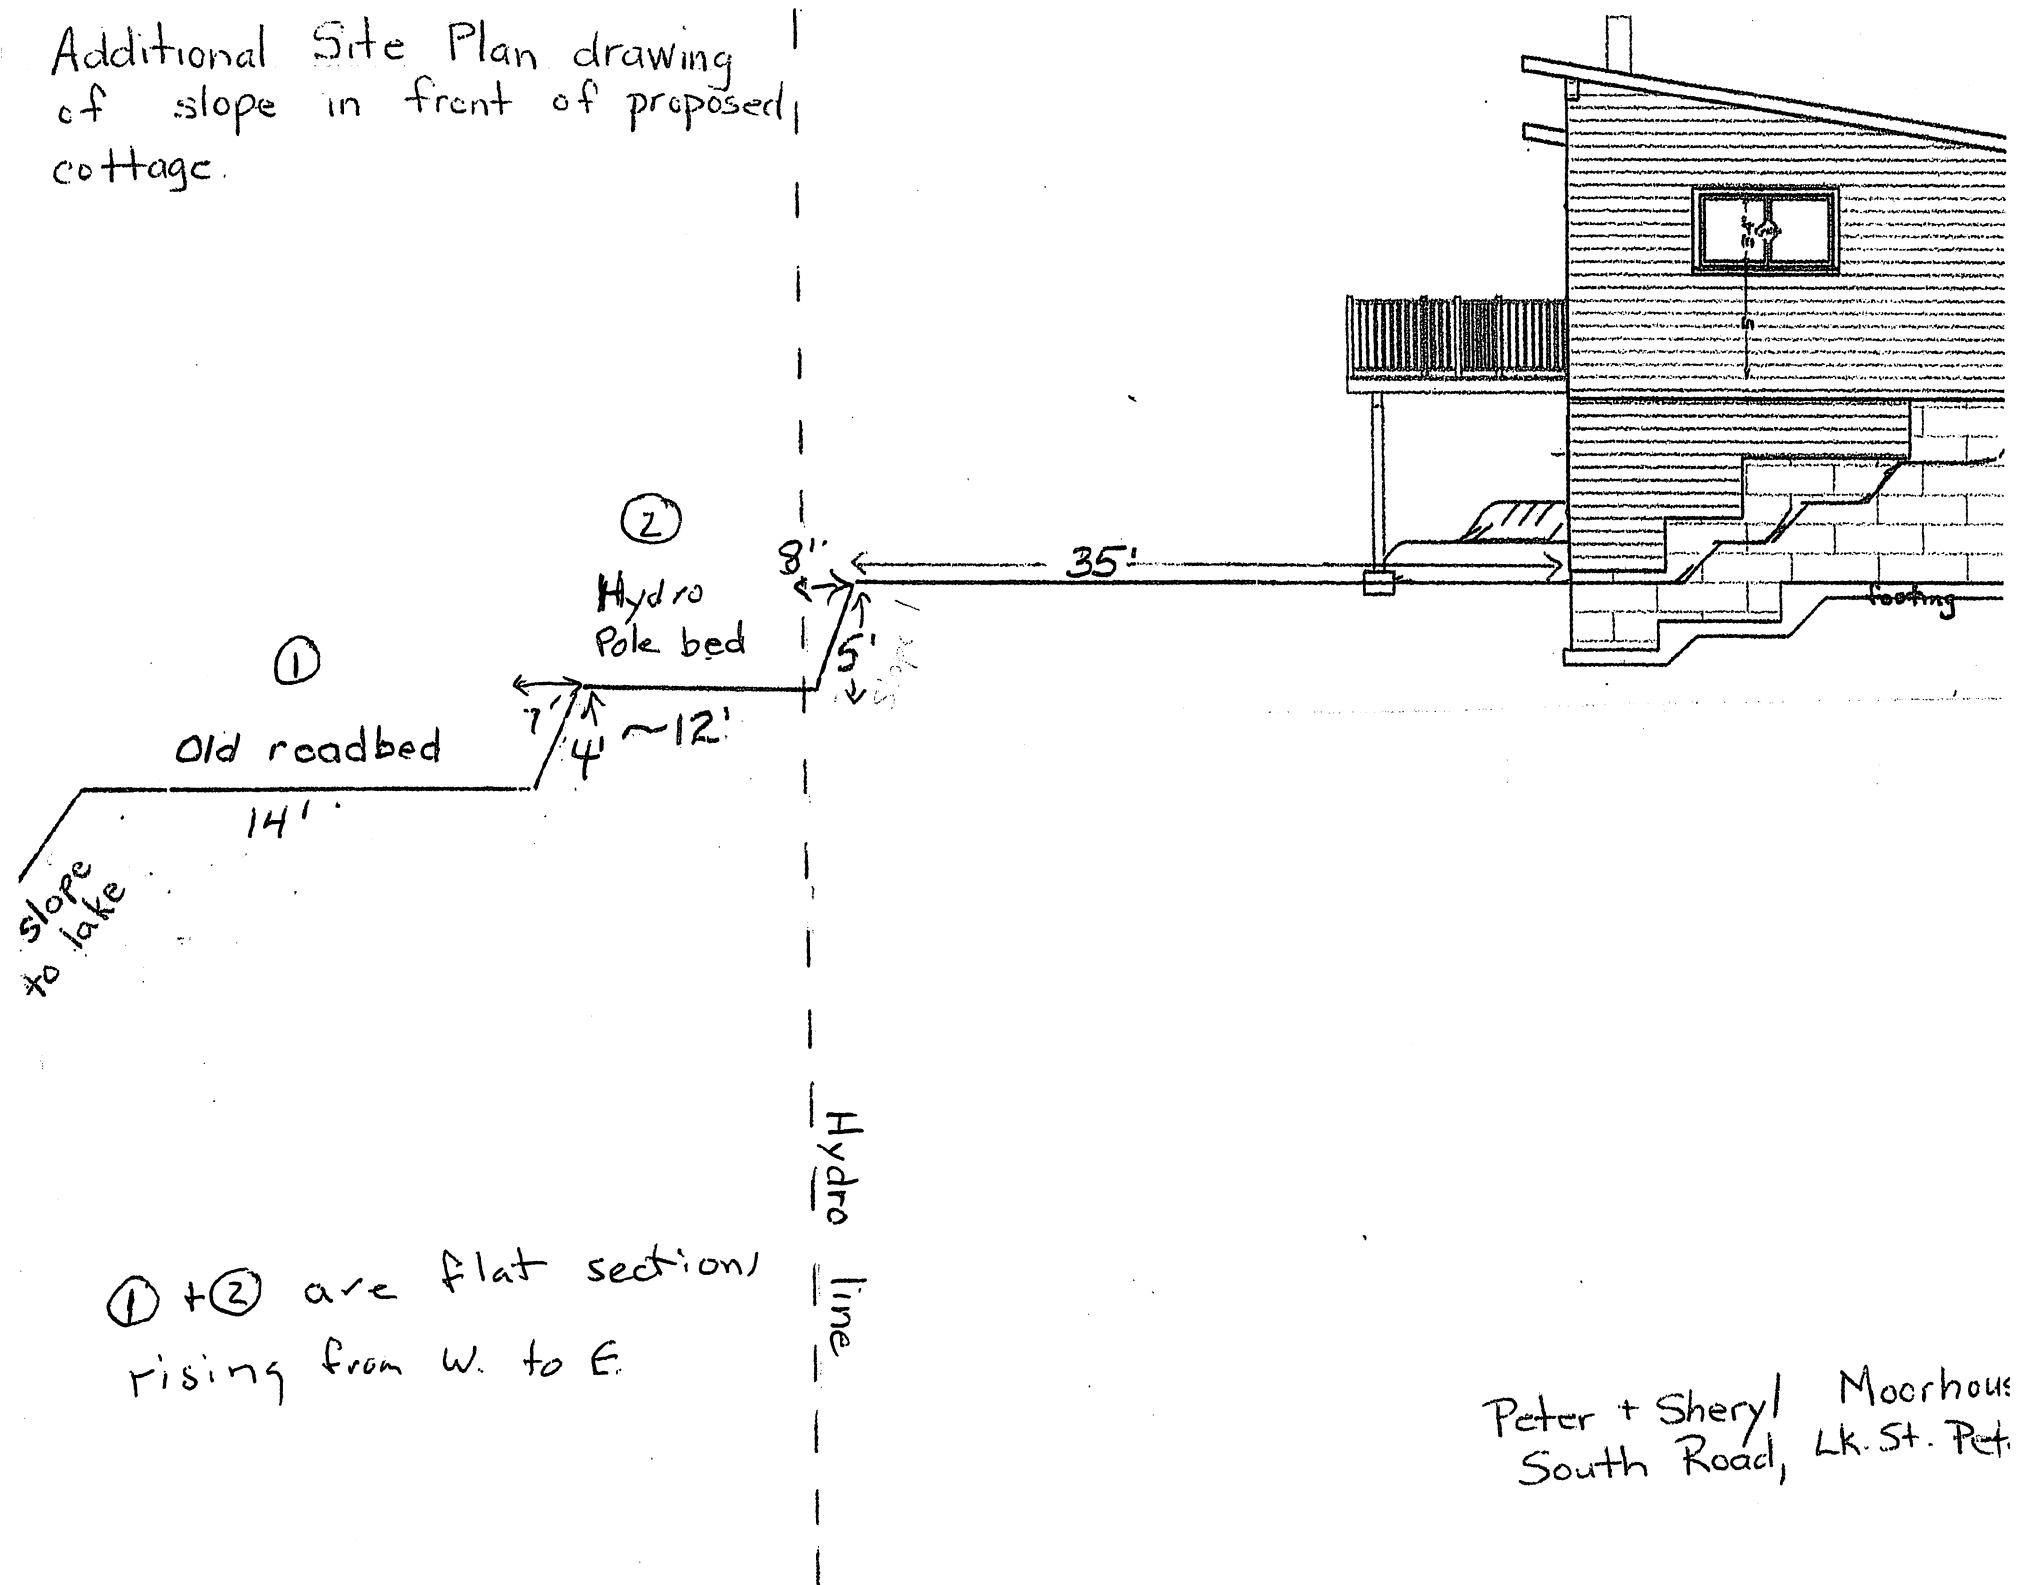 Additional Site Plan drawing
of slope in front of proposed
cottage.
2
8"
35'
Hydro
Pole bed
5'
slope
1
7'
4'
~12'
Old roadbed
14'
slope
to lake
footing
Hydro line
1 + 2 are flat sections
rising from W. to E.
Peter + Sheryl Moorhous
South Road, Lk. St. Pet